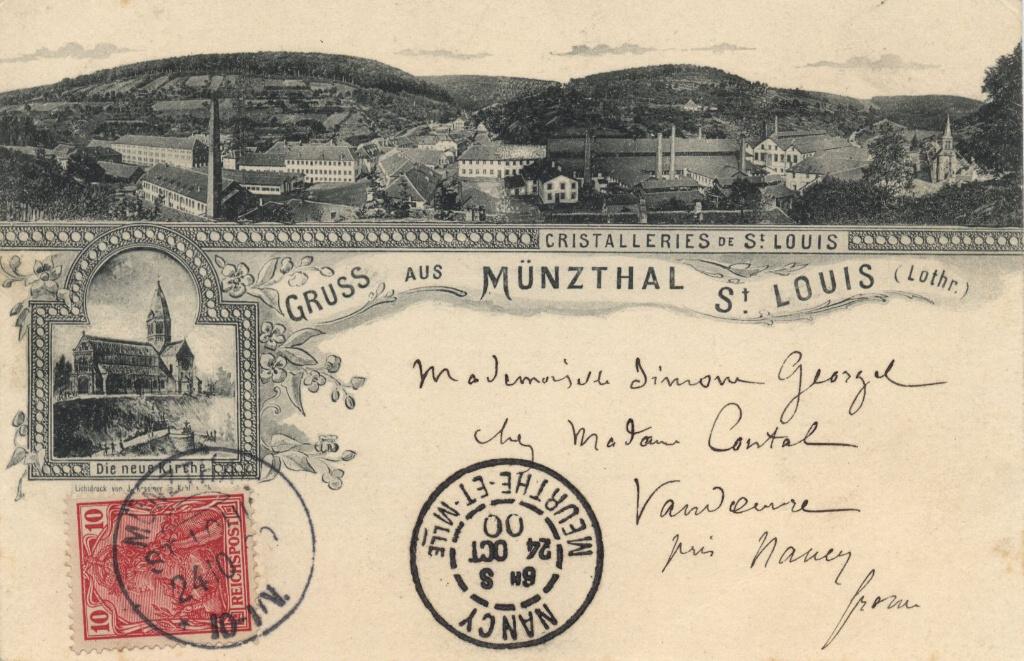 CRISTALLERIES DE St LOUIS
GRUSS AUS MÜNZTHAL St LOUIS (Lothr.)
Mademoiselle Simone Georgel
chez Madame Contal
Vandoeuvre
près Nancy
Die neue Kirche
Lichtdruck von J.
10
REICHSPOST
10
24 10
10-11 V.
NANCY
6H S
24 OCT
00
MEURTHE-ET-MLLE